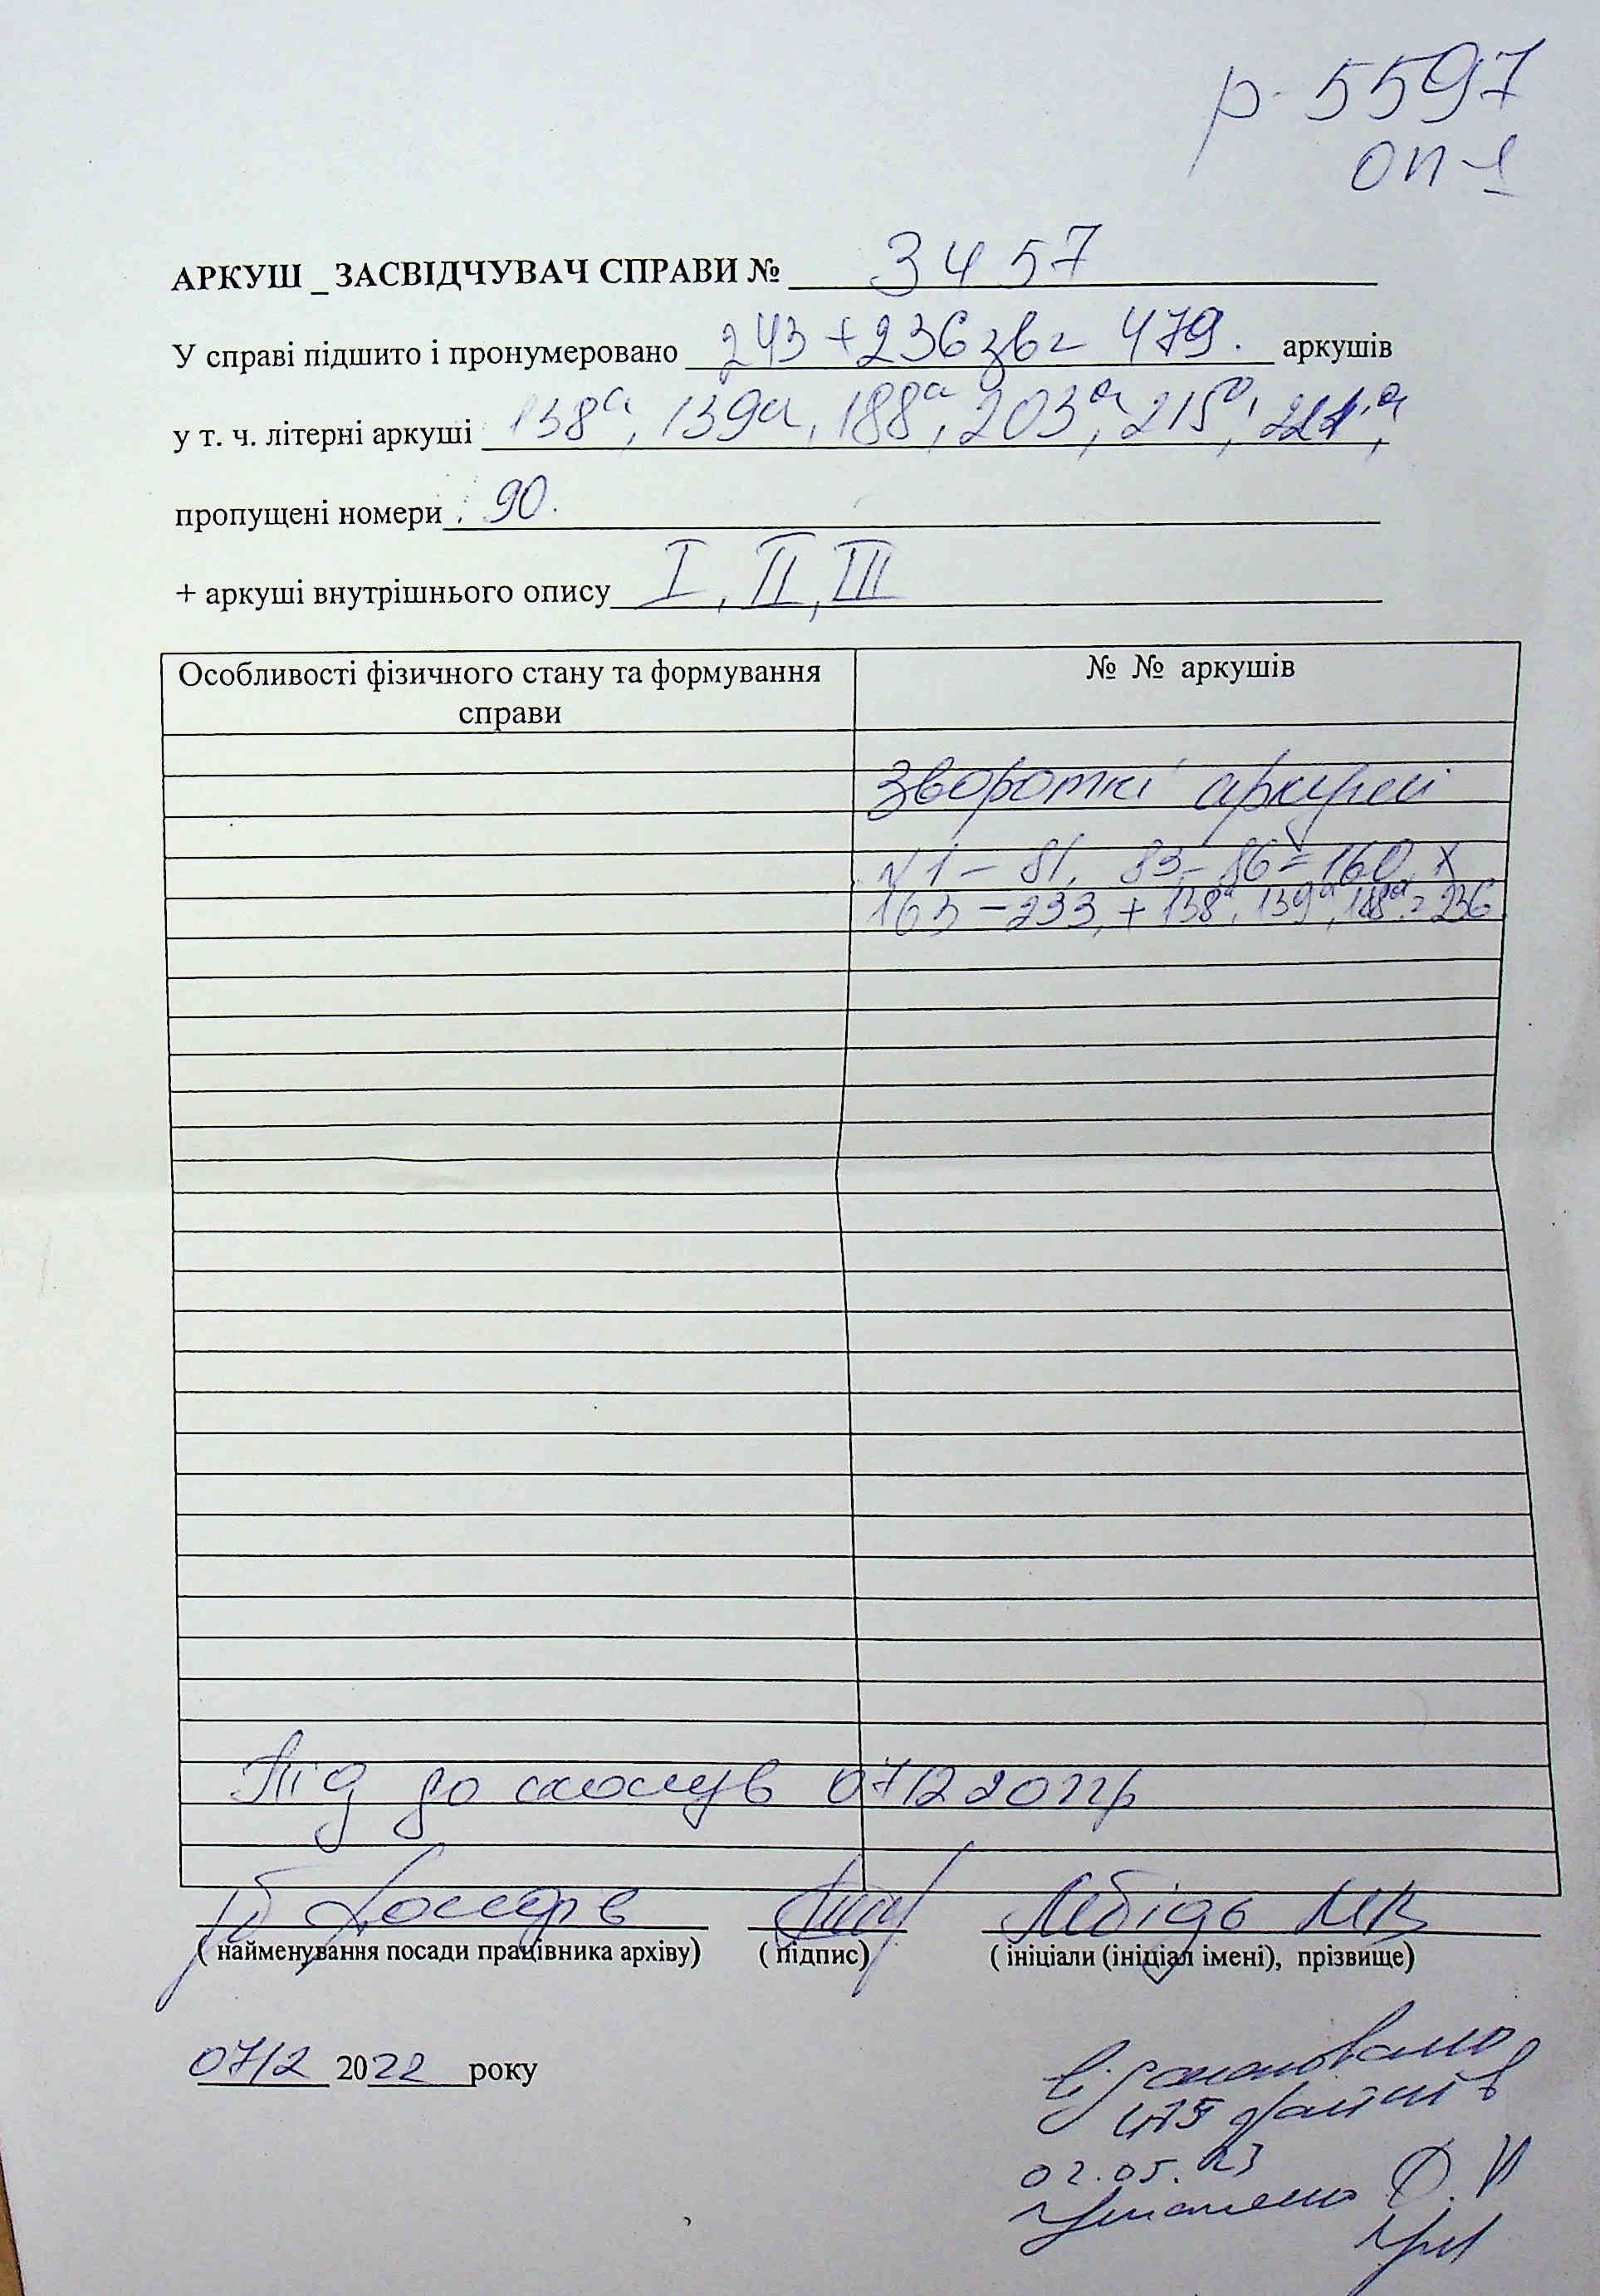 р-5597
оп-1
АРКУШ _ ЗАСВІДЧУВАЧ СПРАВИ № 3457
У справі підшито і пронумеровано 243+236зв= 479. аркушів
у т. ч. літерні аркуші 138а, 139а, 188а, 203а, 215а, 221а,
пропущені номери 90.
+ аркуші внутрішнього опису I, II, III
Особливості фізичного стану та формування справи
№ № аркушів
Зворотні аркуші
№1 – 81, 83 – 86 = 160,
163 – 233, + 138а, 139а, 188а = 236
Під до 07122022р
Лебідь МВ
( найменування посади працівника архіву) ( підпис) ( ініціали (ініціал імені), прізвище)
0712 2022 року
Відскановано
475 файлів
02.05.23
О. И